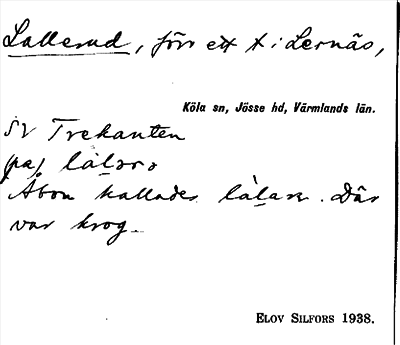 Lallerud, förr ett t i Lernäs,
Köla sn, Jösse hd, Värmlands län.
SV Trekanten
på) 
Åbon kallades. Där
var krog.
ELOV SILFORS 1938.